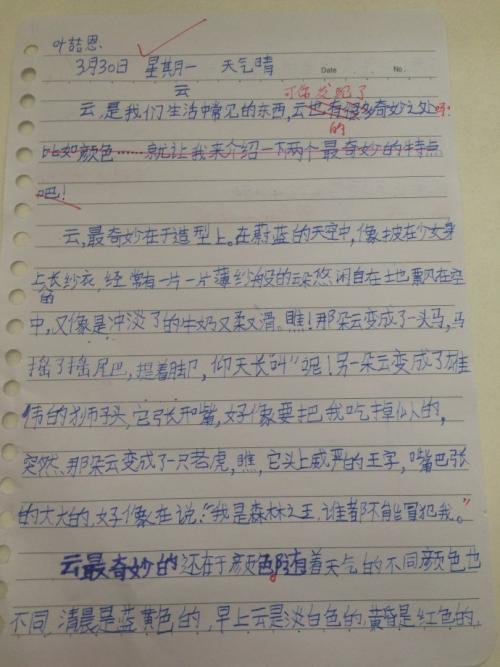 叶喆恩
3月30日 星期一 天气晴
Date No.
云
可你发现了
云,是我们生活中常见的东西,云也有很多奇妙之处吗?
的
比如颜色……就让我来介绍一下两个最奇妙的特点
吧!
云,最奇妙在于造型上。在蔚蓝的天空中,像披在少女身
上长纱衣,经常有一片一片薄纱般的云朵悠闲自在地飘风在空
的
中,又像是冲淡了的牛奶又柔又滑。瞧!那朵云变成了一头马,马
摇了摇尾巴,提着脚,仰天长叫”呢!另一朵云变成了雄
伟的狮子头,它张开嘴,好像要把我吃掉似的,
突然、那朵云变成了一只老虎,瞧,它头上威严的王字,嘴巴张
的大大的,好像在说:“我是森林之王,谁都不能冒犯我。”
云最奇妙的还在于颜色随着天气的不同颜色也
不同,清晨是蓝黄色的,早上云是淡白色的,黄昏是红色的,